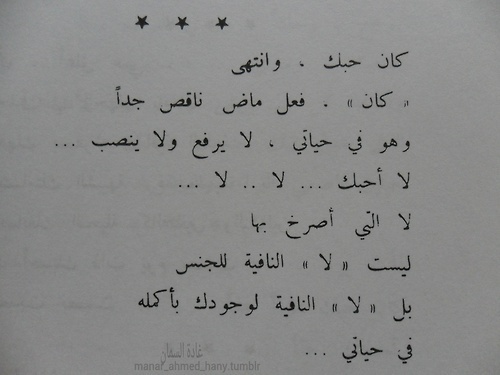 ★ ★ ★
كان حبك . وانتهى
« كان » . فعل ماض ناقص جداً
وهو في حياتي ، لا يرفع ولا ينصب ...
لا أحبك ... لا .. لا ...
لا التي أصرخ بها
ليست « لا » النافية للجنس
بل « لا » النافية لوجودك بأكمله
في حياتي ...
غادة السمان
manar_ahmed_hany.tumblr